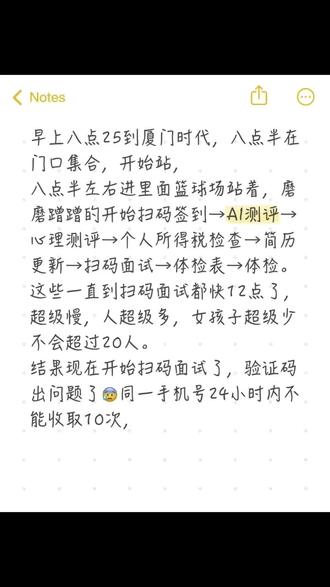 Notes
早上八点25到厦门时代，八点半在
门口集合，开始站，
八点半左右进里面篮球场站着，磨
磨蹭蹭的开始扫码签到→AI测评→
心理测评→个人所得税检查→简历
更新→扫码面试→体检表→体检。
这些一直到扫码面试都快12点了，
超级慢，人超级多，女孩子超级少
不会超过20人。
结果现在开始扫码面试了，验证码
出问题了😰同一手机号24小时内不
能收取10次，